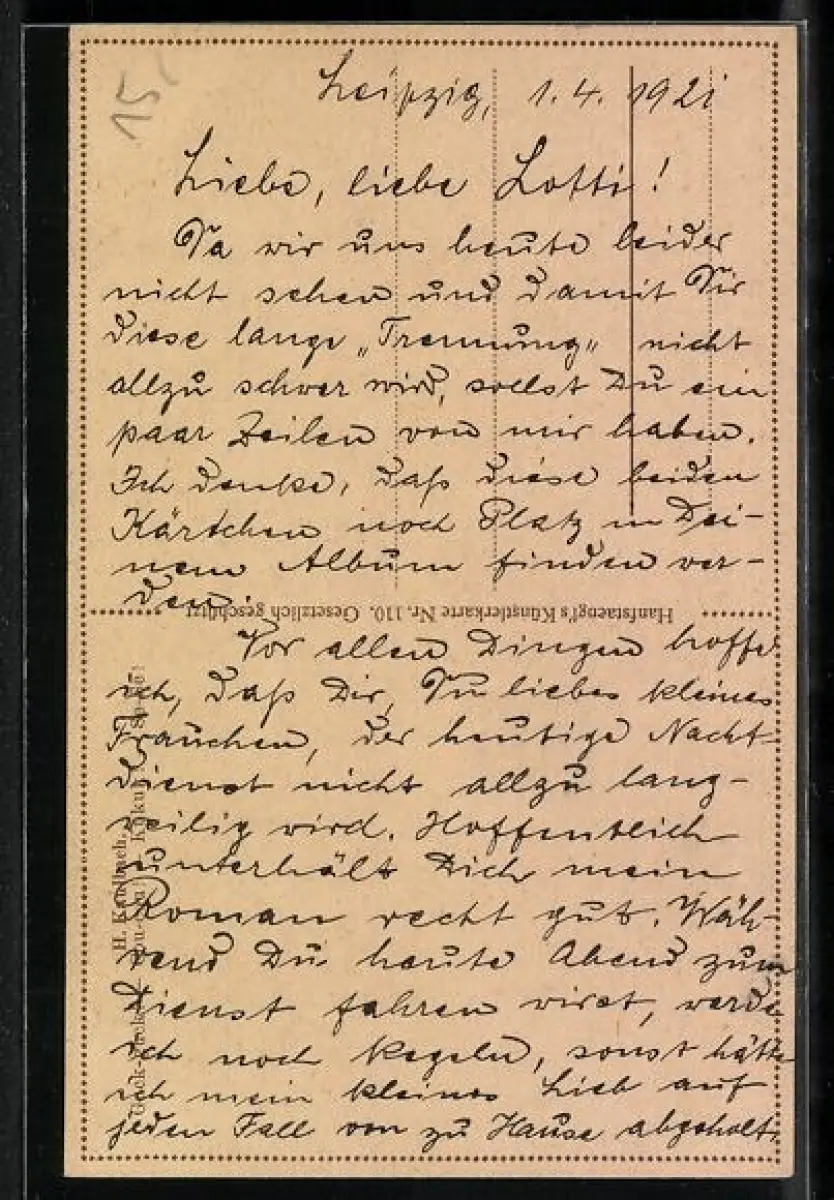 15
Leipzig, 1.4.1921
Liebe, liebe Lotti!
Da wir uns heute leider
nicht sehen und damit Dir
diese lange „Trennung“ nicht
allzu schwer wird, sollst Du ein
paar Zeilen von mir haben.
Ich denke, daß diese beiden
Kärtchen noch Platz in Dei-
nem Album finden wer-
den.
Hanfstaengl's Künstlerkarte Nr. 110. Gesetzlich geschützt
Vor allen Dingen hoffe
ich, daß Dir, Du liebes kleines
Frauchen, der heutige Nacht-
dienst nicht allzu lang-
weilig wird. Hoffentlich
unterhält Dich mein
Roman recht gut. Wäh-
rend Du heute Abend zum
Dienst fahren wirst, werde
ich noch kegeln, sonst hätte
ich mein kleines Lieb auf
jeden Fall von zu Hause abgeholt.
H. Kaulbach